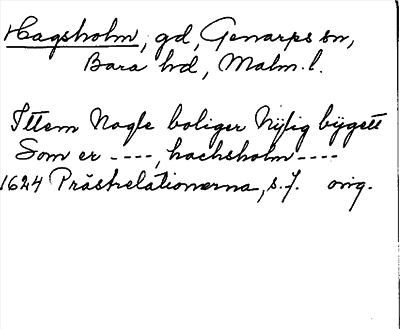 Hagsholm, gd, Genarps sn,
Bara hd, Malm. l.
Ittem Nogle boliger Nÿlig bÿgett
Som er ----, hachsholm ----
1624 Prästrelationerna, s. 7. orig.